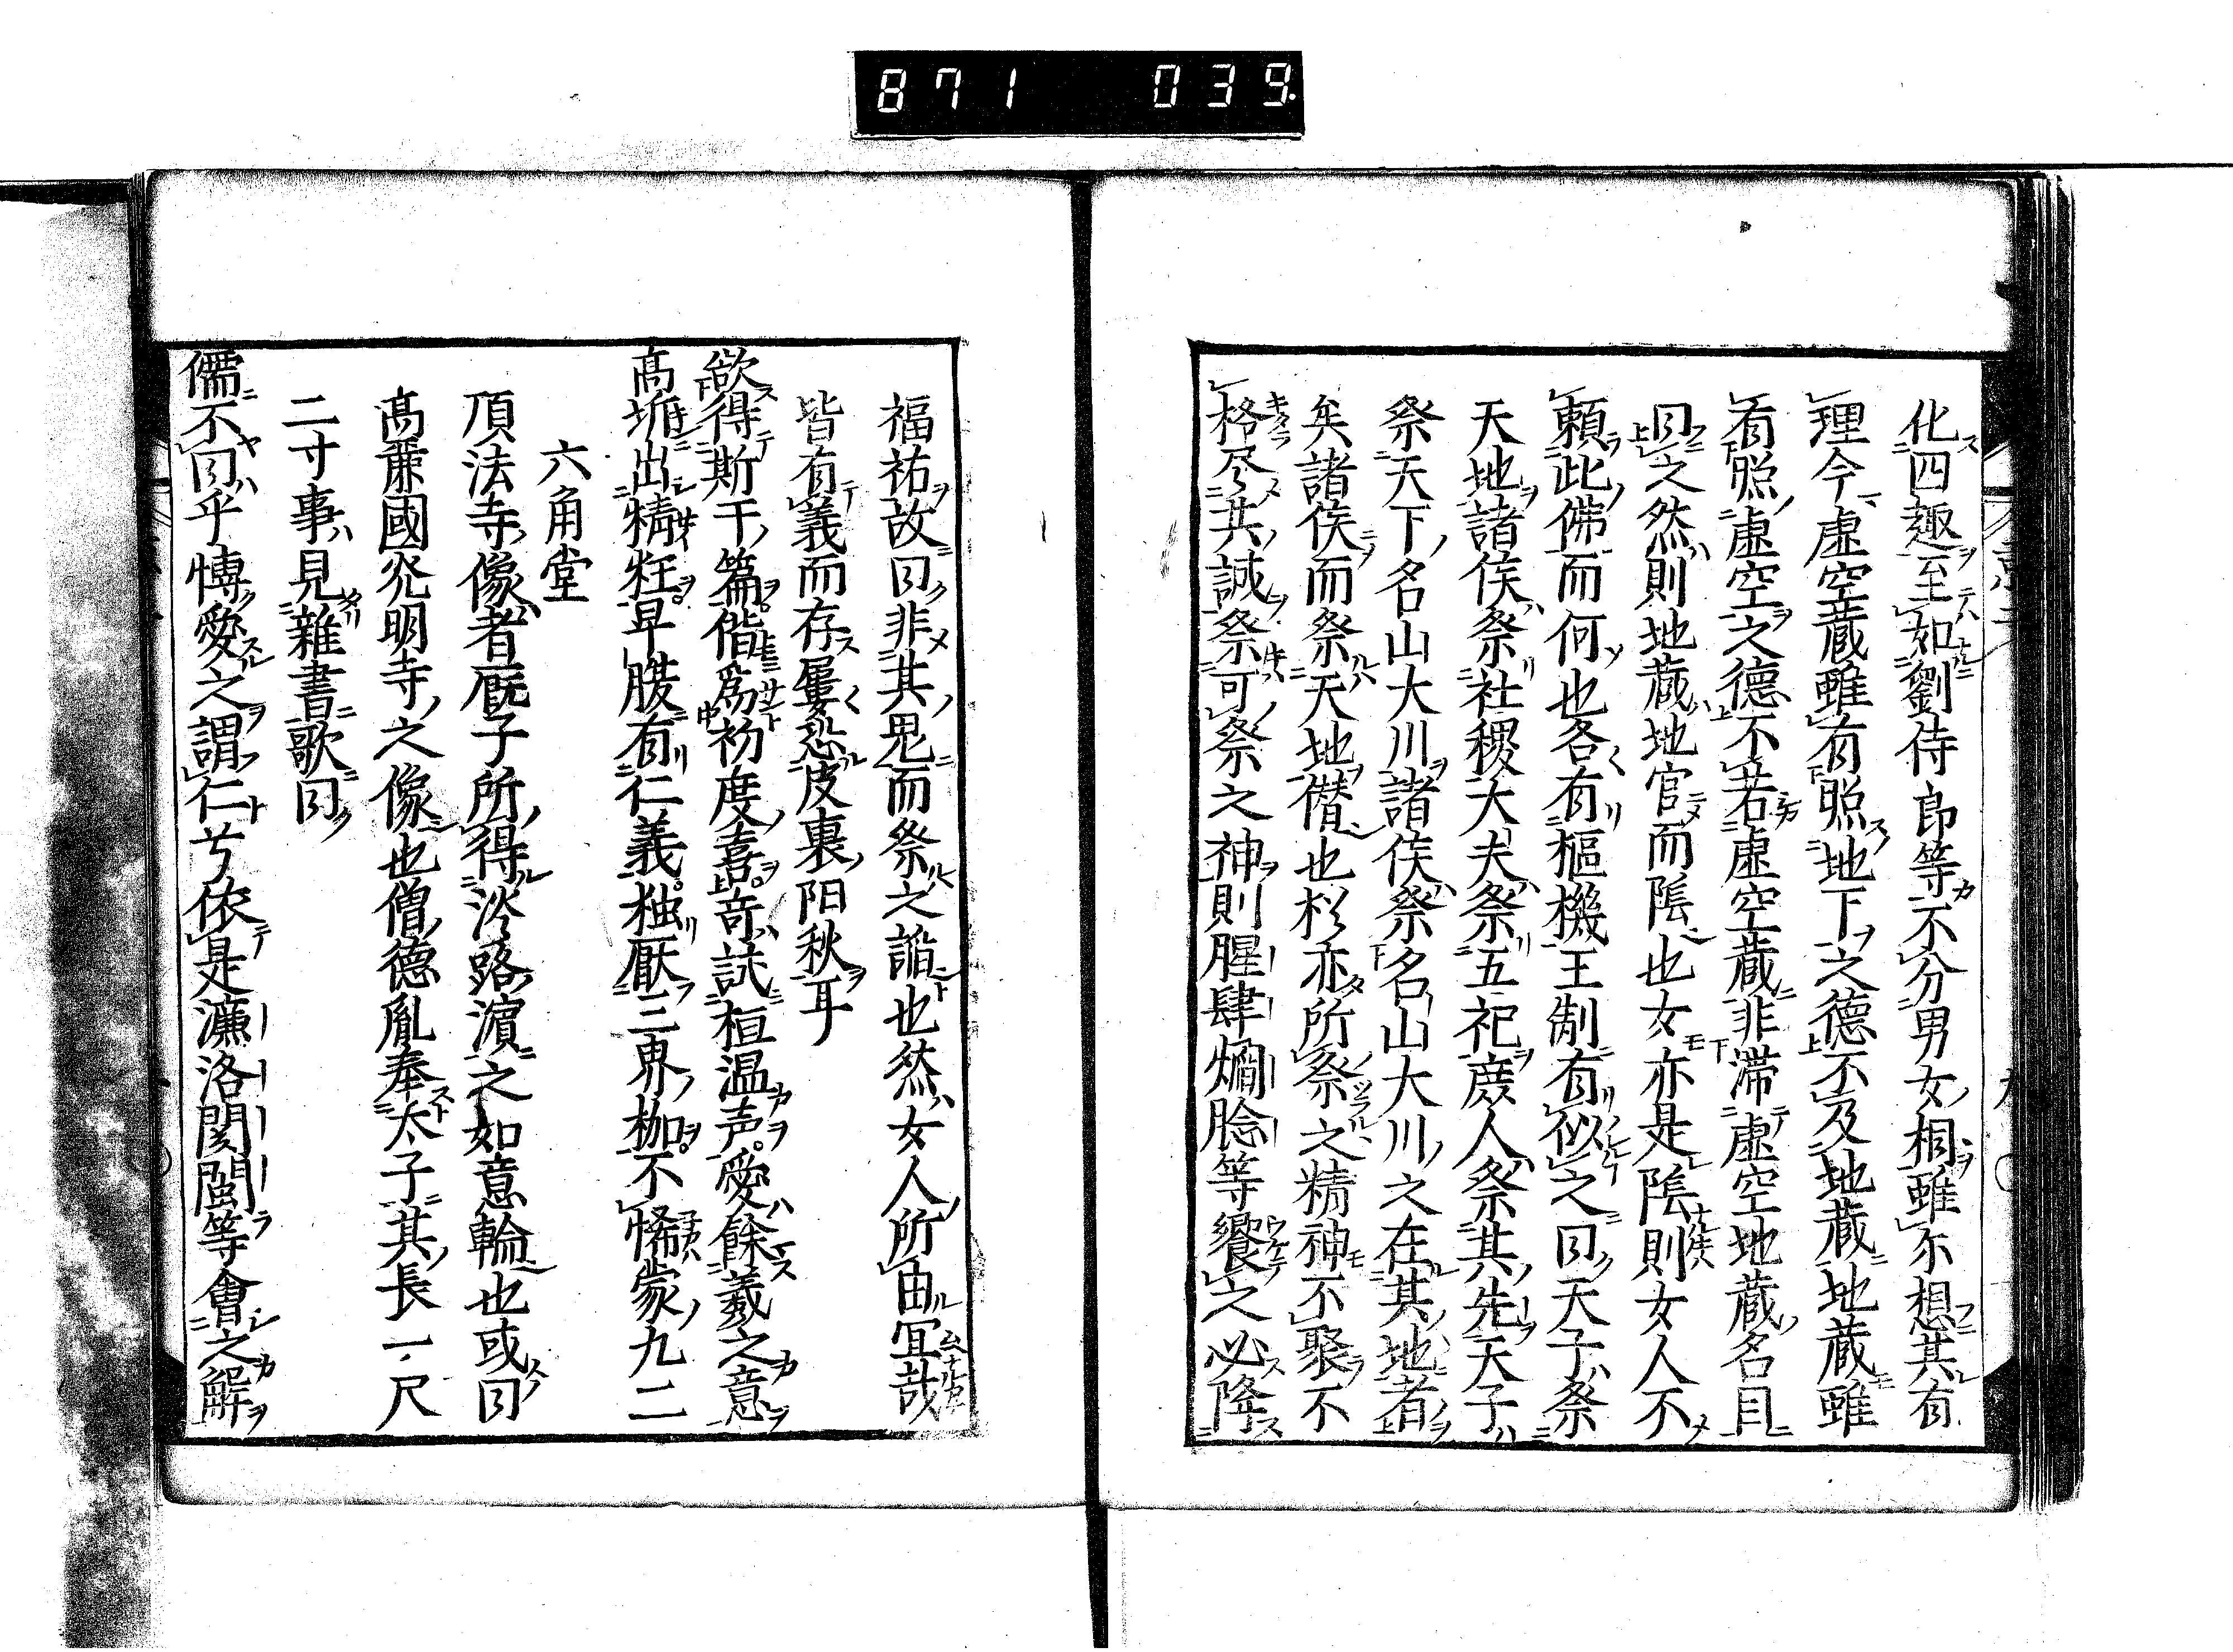 871 039
化四趣至如劉侍郎等不分男女相雖不想其有
理今虚空蔵雖有照地下之德不及地蔵地蔵雖
有照虚空之德不若虚空蔵非滞虚空地蔵名目
曰之然則地蔵地官而陰也女亦是陰則女人不
頼此佛而何也各有樞機王制有似之曰天子祭
天地諸侯祭社稷大夫祭五祀庶人祭其先天子
祭天下名山大川諸侯祭名山大川之在其地者
矣諸侯而祭天地僣也杉亦所祭之精神不聚不
格尽其誠祭可祭之神則腥肆爓腍等饗之必降
福祐故曰非其鬼而祭之諂也然女人所由冝哉
皆有義而存屢恐皮裏阳秋耳
欲得斯干篇偕為初度喜奇試桓温声愛餘羲之意
髙垢出精粧早䐶有仁義独厭三界枷不悕蒙九二
六角堂
頂法寺像者厩子所得淡路濵之如意輪也或曰
髙麗國光明寺之像也僧德胤奉太子其長一尺
二寸事見雜書歌曰
儒不曰乎愽愛之謂仁兮依是濂洛関閩等會之解